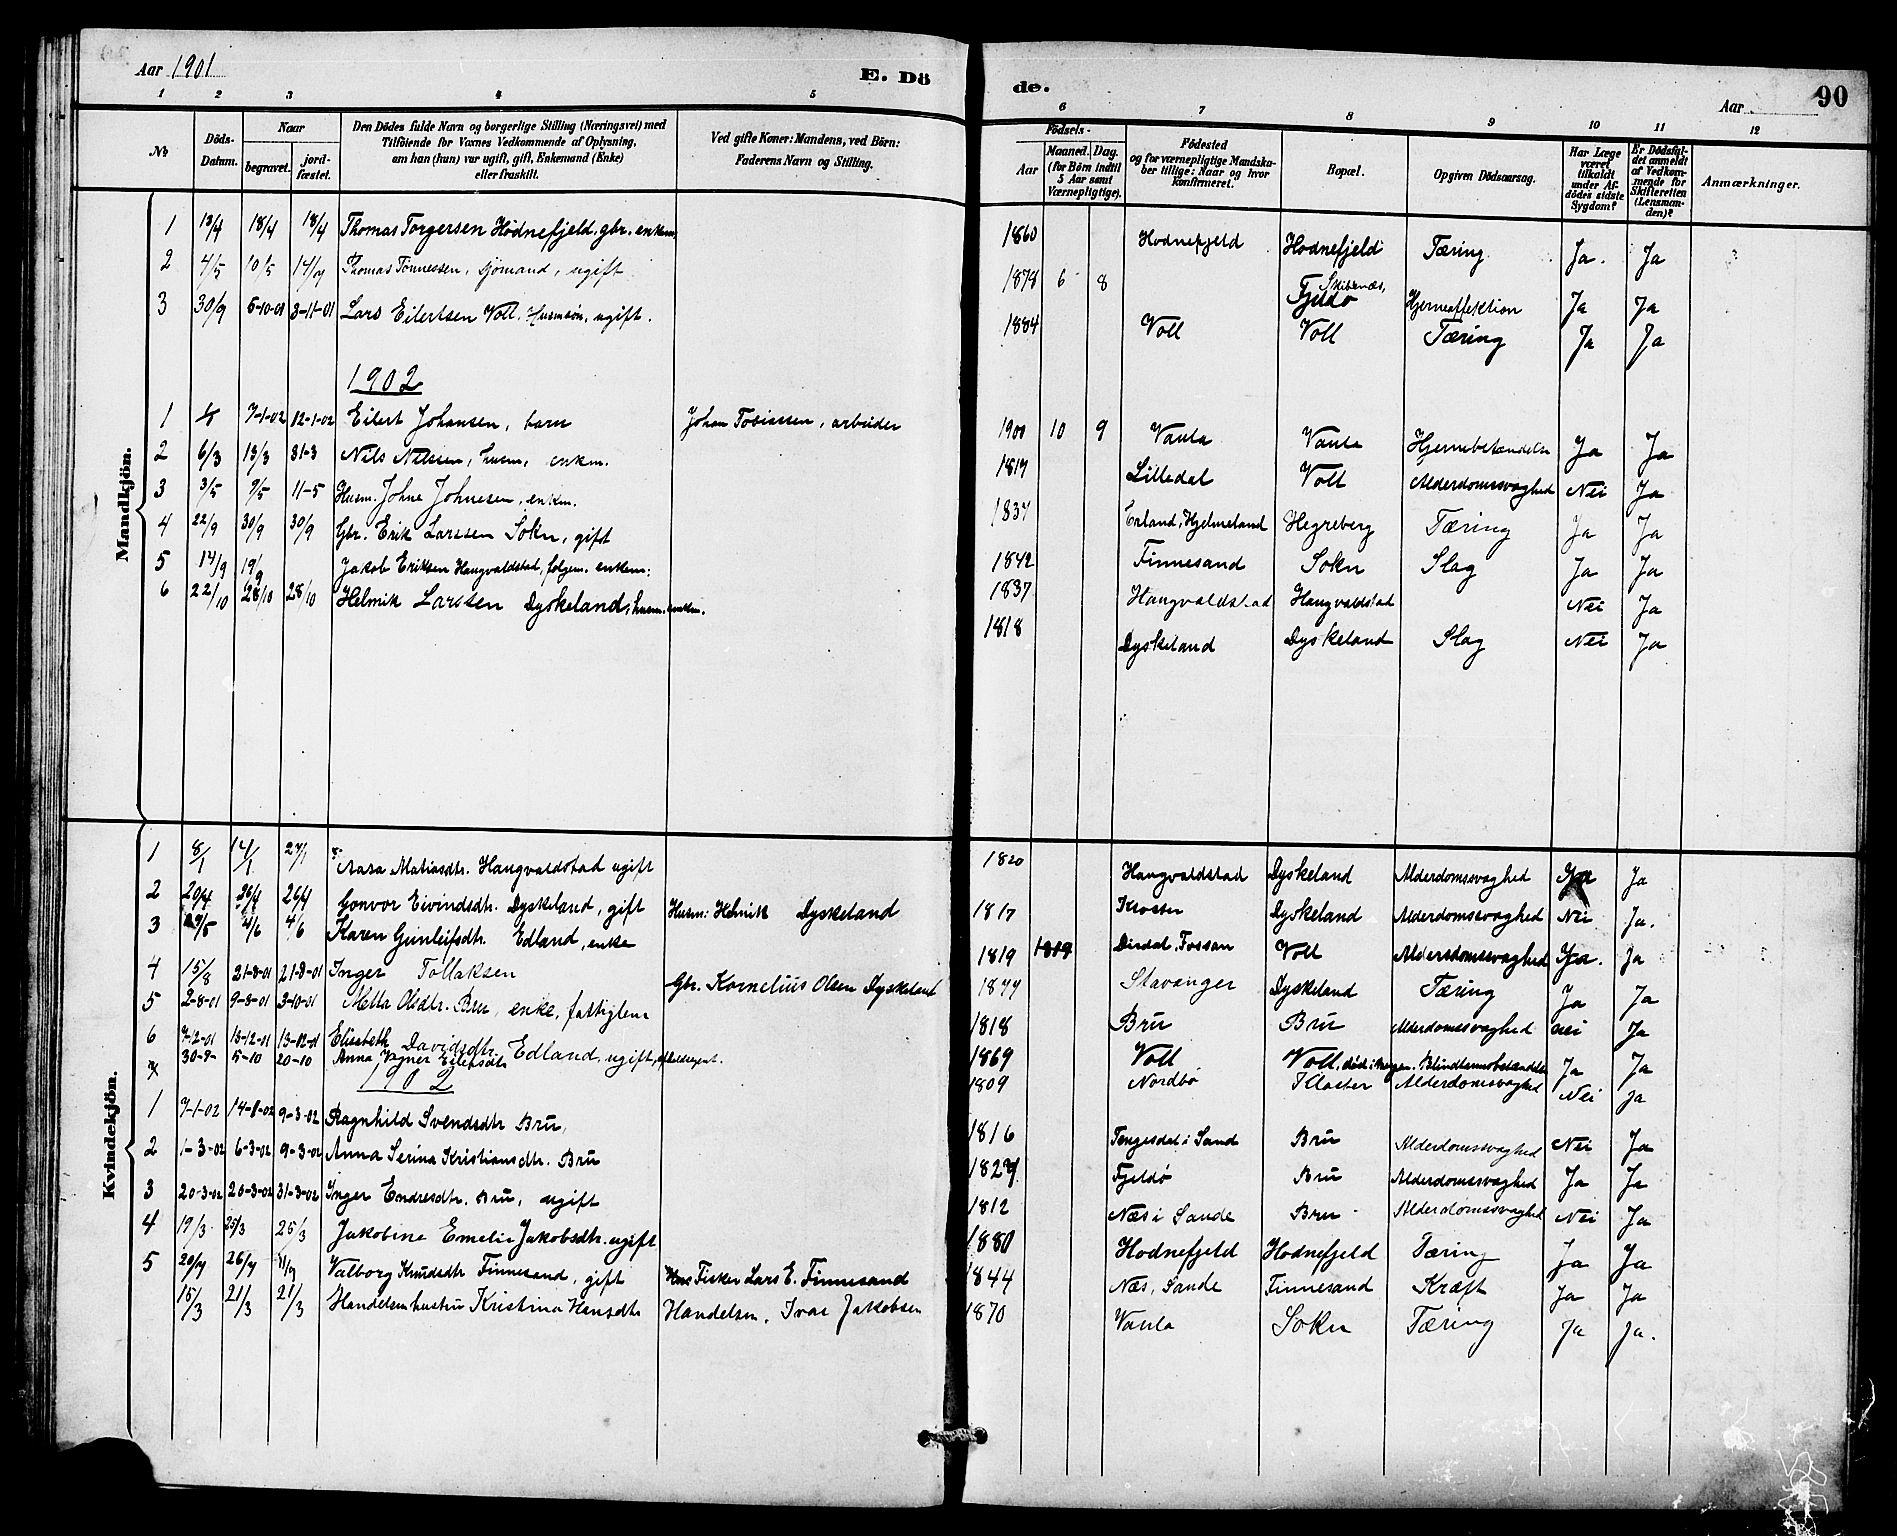 Aar 1901
E. Dö
de.
Aar
90
1 2 3 4 5
6 7 8 9 10 11 12
No
Döds-Datum.
Naar
begravet.
jord-fæstet.
Den Dödes fulde Navn og borgerlige Stilling (Næringsvei) med
Tilföiende for Voxnes Vedkommende af Oplysning,
om han (hun) var ugift, gift, Enkemand (Enke)
eller fraskilt.
Ved gifte Koner: Mandens, ved Börn:
Faderens Navn og Stilling.
Födsels-
Aar
Maaned. Dag.
(for Börn indtil
5 Aar samt
Værnepligtige).
Födested
og for værnepligtige Mandska-
ber tillige: Naar og hvor
Konfirmeret.
Bopæl.
Opgiven Dödsaarsag.
Har Læge
været
tilkaldt
under Af-
dödes sidste
Sygdom?
Er Dödsfal-
det anmeldt
af Vedkom-
mende for
Skifteretten
(Lensman-
den)?
Anmærkninger.
Mandkjön.
1 13/4 18/4 18/4 Thomas Torgersen Hodnefjeld. gbr. enkem. 1860 Hodnefjeld Hodnefjeld Tæring Ja. Ja
2 4/5 10/5 14/7 Thomas Tönnessen, sjömand, ugift 1878 6 8 Fjeldø Hjerneaffektion Ja Ja
3 30/9 5-10-01 3-11-01 Lars Eilertsen Voll. Husmsön, ugift. 1884 Voll Voll Tæring Ja Ja
1902
1 7-1-02 12-1-02 Eilert Johansen, barn Johan Tobiassen, arbeider 1900 10 9 Vaula Vaula Hjernebetændelse Ja Ja
2 6/3 13/3 31-3 Nils Nilssen, husm, enkm. 1817 Lilledal Voll Alderdomssvaghed Nei Ja
3 3/5 9/5 11-5 Husm. Johne Johnesen, enkm. 1837 Erland, Hjelmeland Hegreberg Tæring Ja Ja
4 22/9 30/9 30/9 Gbr. Erik Larssen Sokn, gift 1842 Finnesand Sokn Slag Ja Ja
5 14/9 19/9 Jakob Eriksen Haugvaldstad, folgem. enkem: 1837 Haugvaldstad Haugvaldstad Nei Ja
6 22/10 28/10 28/10 Helmik Larssen Dyskeland, husm. enkm. 1818 Dyskeland Dyskeland Slag Nei Ja
Kvindekjön.
1 8/1 14/1 27/1 Aasa Matiasdtr. Haugvaldstad ugift 1820 Haugvaldstad Dyskeland Alderdomssvaghed Ja Ja
2 20/4 26/4 26/4 Gonvor Eivindsdtr. Dyskeland, gift Husm: Helmik Dyskeland 1817 Kloster Dyskeland Alderdomssvaghed Nei Ja.
3 29/5 4/6 4/6 Karen Gunleifsdtr. Edland, enke 1819 1819 Dirdal, Fossan Voll Alderdomssvaghed Ja. Ja
4 15/8 21-8-01 21-8-01 Inger Tollaksen Gbr. Kornelius Olsen Dyskeland 1877 Stavanger Dyskeland Tæring Ja Ja
5 2-8-01 9-8-01 3-10-01 Metta Olsdtr. Bru, enke, fattiglem 1818 Bru Bru Alderdomssvaghed nei Ja
6 7-12-01 13-12-01 13-12-01 Elisabeth Davidsdtr. Edland, ugift, 1869 Voll Voll, död i Bergen. Blindtarmsbetændelse Ja Ja
7 30-9- 5-10 20-10 Anna Eilefsdtr 1809 Nordbø Kloster Alderdomssvaghed Nei Ja
1902
1 7-1-02 14-1-02 9-3-02 Ragnhild Svendsdtr Bru, 1816 Tengesdal i Sand Bru Alderdomssvaghed Nei Ja
2 1-3-02 6-3-02 9-3-02 Anna Serina Kristiansdtr. Bru 1827 Fjeldø Bru Alderdomssvaghed Ja Ja
3 20-3-02 20-3-02 31-3-02 Inger Endresdtr. Bru, ugift 1812 Næs i Sande Bru Alderdomssvaghed Nei Ja
4 19/3 25/3 25/3 Jakobine Emelie Jakobsdtr. ugift 1880 Hodnefjeld Hodnefjeld Tæring Ja Ja
5 20/7 26/7 Valborg Knudsdtr Finnesand, gift Fisker Lars E. Finnesand 1844 Næs, Sande Finnesand Kræft Ja Ja
15/3 21/3 21/3 Handelsm hustru Kristina Hansdtr Handelsm. Ivar Jakobsen 1870 Vaula Sokn Tæring Ja Ja.